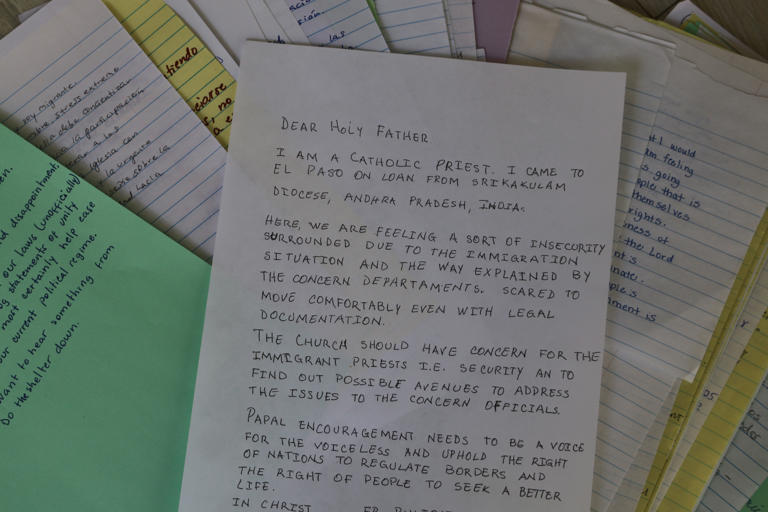 DEAR HOLY FATHER
I AM A CATHOLIC PRIEST. I CAME TO
EL PASO ON LOAN FROM SRIKAKULAM
DIOCESE, ANDHRA PRADESH, INDIA.
HERE, WE ARE FEELING A SORT OF INSECURITY
SURROUNDED DUE TO THE IMMIGRATION
SITUATION AND THE WAY EXPLAINED BY
THE CONCERN DEPARTAMENTS. SCARED TO
MOVE COMFORTABLY EVEN WITH LEGAL
DOCUMENTATION.
THE CHURCH SHOULD HAVE CONCERN FOR THE
IMMIGRANT PRIESTS I.E. SECURITY AN TO
FIND OUT POSSIBLE AVENUES TO ADDRESS
THE ISSUES TO THE CONCERN OFFICIALS.
PAPAL ENCOURAGEMENT NEEDS TO BE A VOICE
FOR THE VOICELESS AND UPHOLD THE RIGHT
OF NATIONS TO REGULATE BORDERS AND
THE RIGHT OF PEOPLE TO SEEK A BETTER
LIFE.
IN CHRIST
disappointment
our laws (unofficially)
statements of unity
most certainly help ease
our current political regime.
want to hear something from
Do the shelter down.
my migrante.
sobre stress extremo
la participación
a las
iglesia con
la urgente
sobre la
hacia
tiendo
no
las
t I would
feeling
going
ple that is
themselves
rights.
ness of
the Lord
ment is